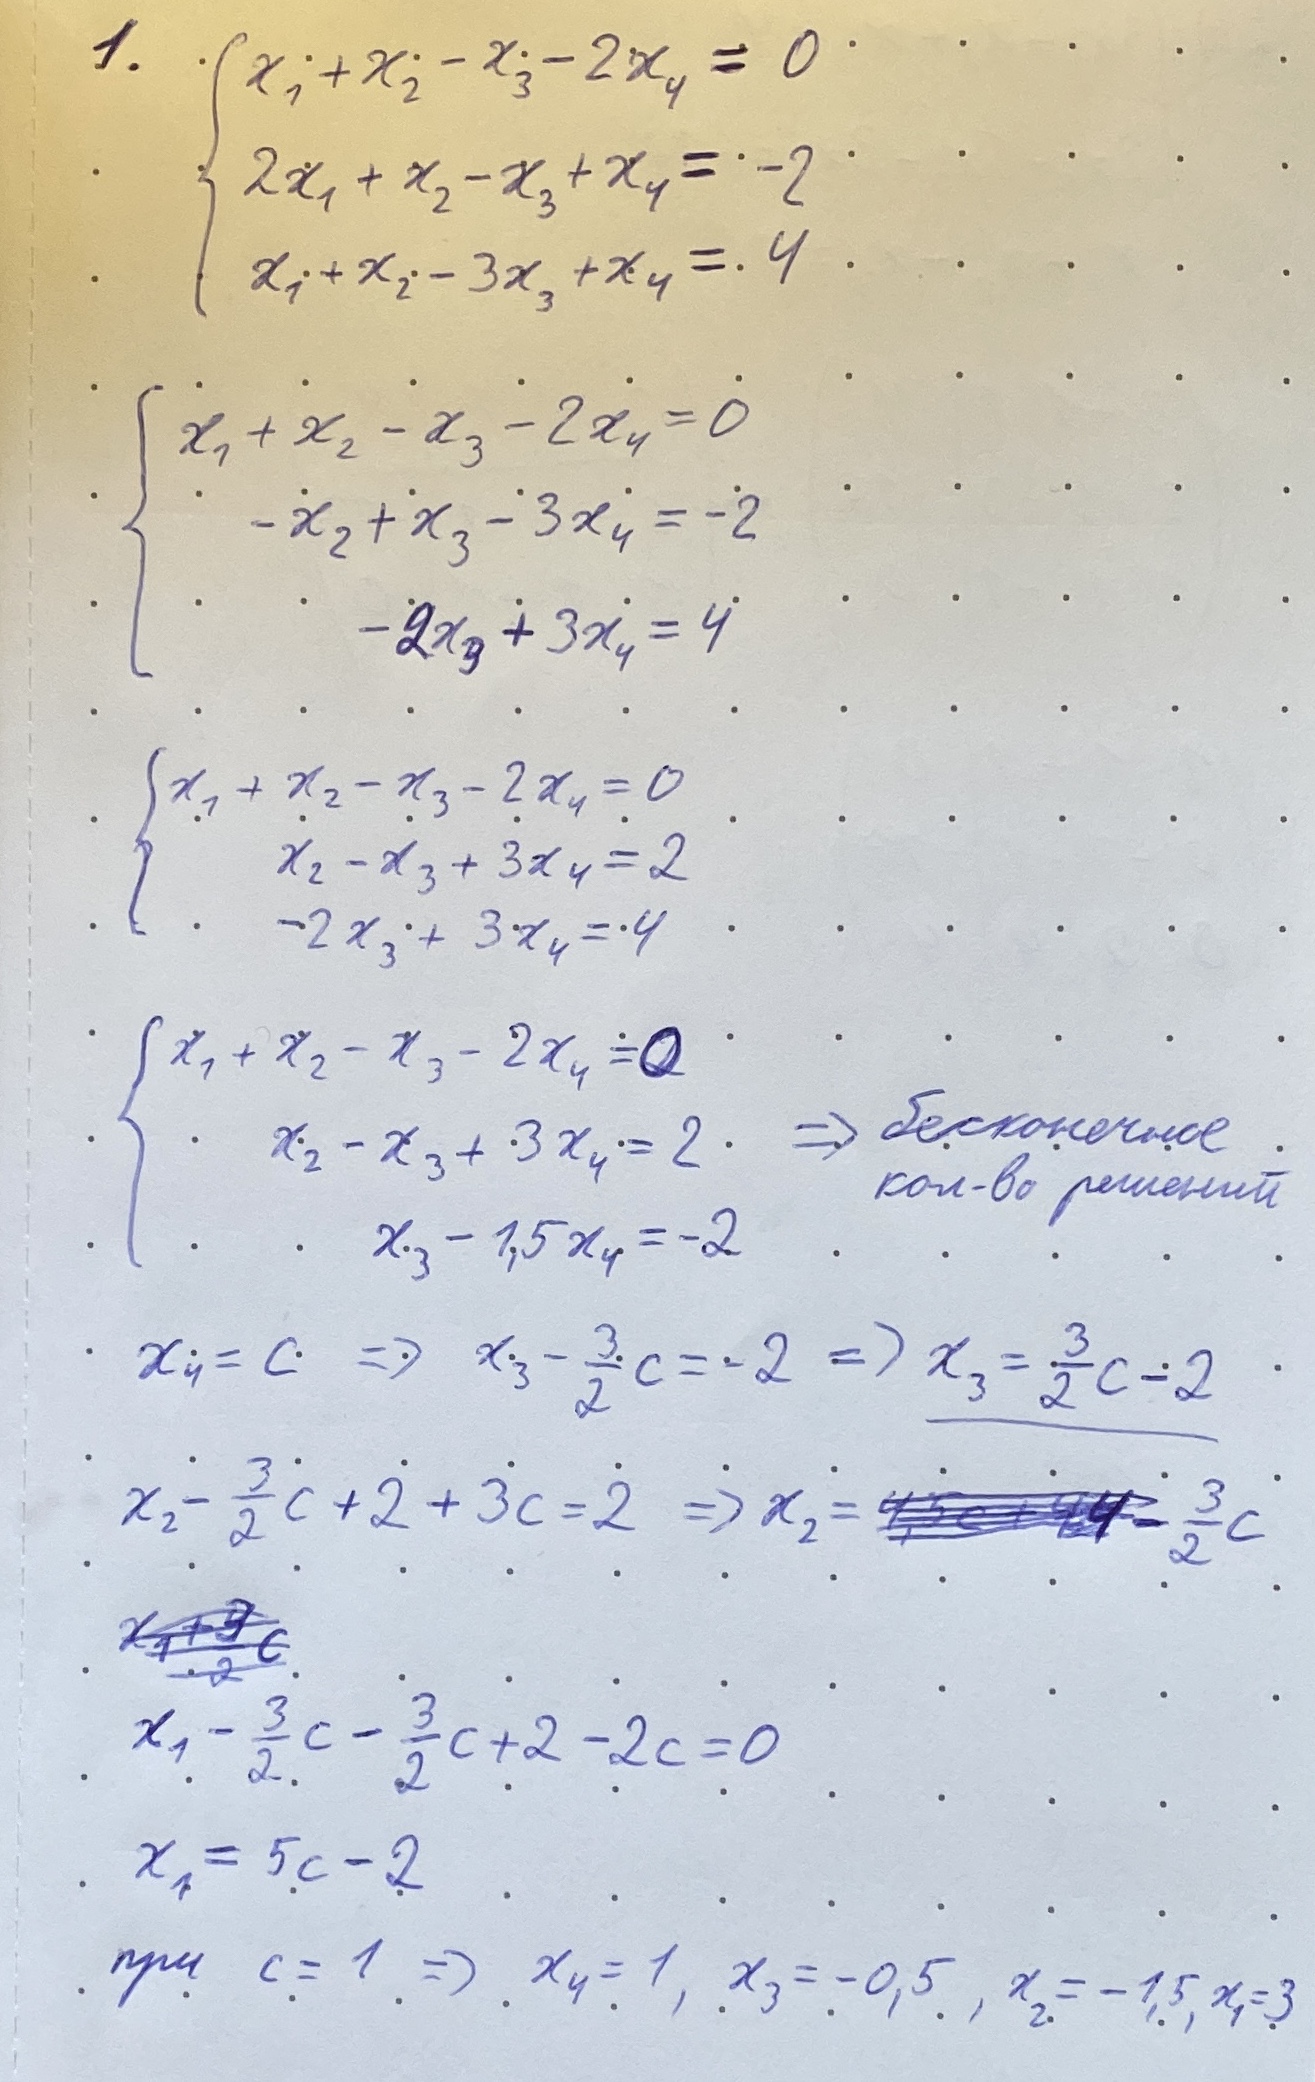 1. x₁ + x₂ - x₃ - 2x₄ = 0
2x₁ + x₂ - x₃ + x₄ = -2
x₁ + x₂ - 3x₃ + x₄ = 4
x₁ + x₂ - x₃ - 2x₄ = 0
-x₂ + x₃ - 3x₄ = -2
-2x₃ + 3x₄ = 4
x₁ + x₂ - x₃ - 2x₄ = 0
x₂ - x₃ + 3x₄ = 2
-2x₃ + 3x₄ = 4
x₁ + x₂ - x₃ - 2x₄ = 0
x₂ - x₃ + 3x₄ = 2 => бесконечное
кол-во решений
x₃ - 1,5x₄ = -2
x₄ = c => x₃ - 3/2 c = -2 => x₃ = 3/2 c - 2
x₂ - 3/2 c + 2 + 3c = 2 => x₂ = - 3/2 c
x₁ - 3/2 c - 3/2 c + 2 - 2c = 0
x₁ = 5c - 2
при c = 1 => x₄ = 1, x₃ = -0,5, x₂ = -1,5, x₁ = 3